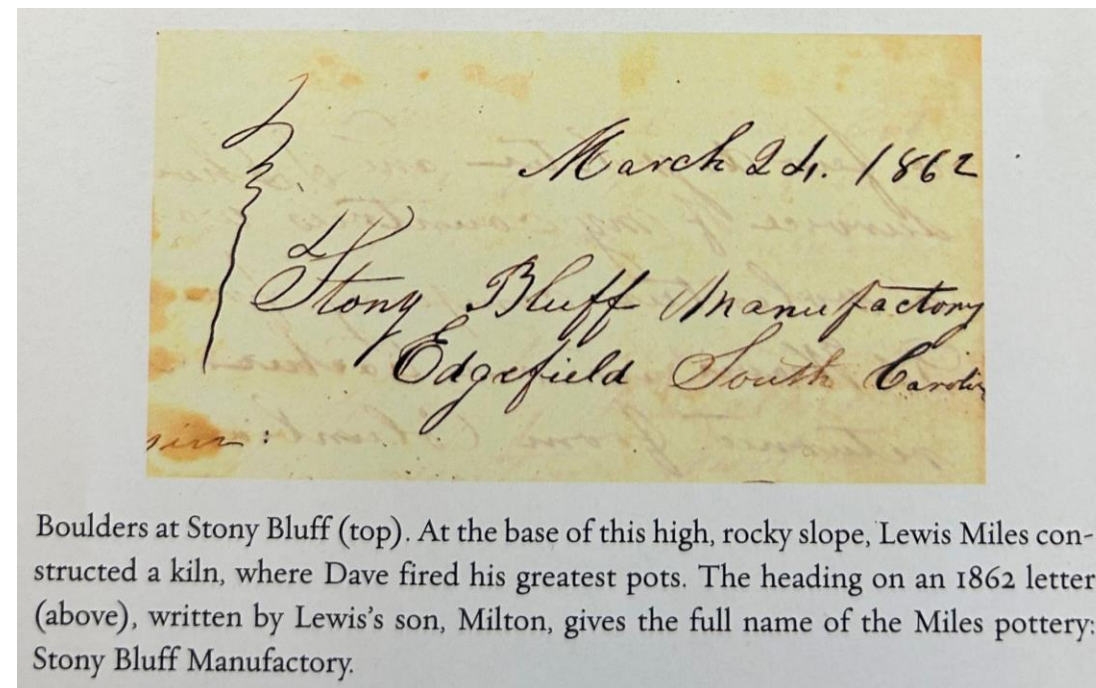 March 24. 1862
Stony Bluff Manufactory
Edgefield South Carolin
Boulders at Stony Bluff (top). At the base of this high, rocky slope, Lewis Miles con-
structed a kiln, where Dave fired his greatest pots. The heading on an 1862 letter
(above), written by Lewis's son, Milton, gives the full name of the Miles pottery:
Stony Bluff Manufactory.